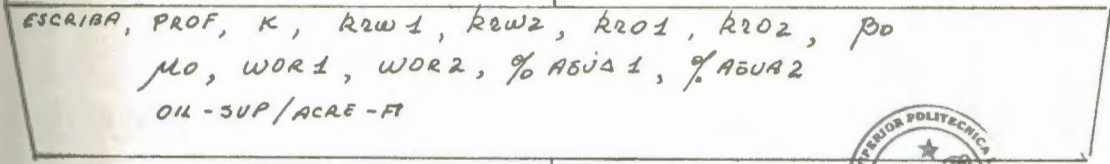 ESCRIBA, PROF, K, krw1, krw2, kro1, kro2, βo
μo, WOR1, WOR2, % AGUA 1, % AGUA 2
OIL-SUP/ACRE-FT
POLITECNICA